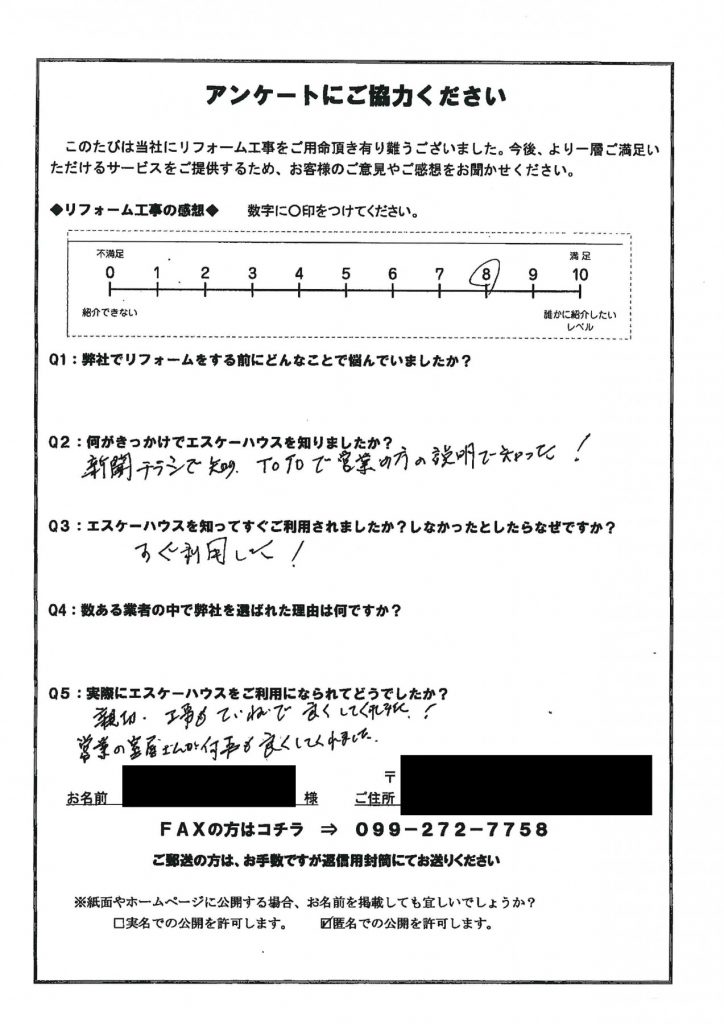 アンケートにご協力ください
このたびは当社にリフォーム工事をご用命頂き有り難うございました。今後、より一層ご満足い
ただけるサービスをご提供するため、お客様のご意見やご感想をお聞かせください。
◆リフォーム工事の感想◆ 数字に〇印をつけてください。
不満足 満足
0 1 2 3 4 5 6 7 8 9 10
紹介できない 誰かに紹介したい
レベル
Q1：弊社でリフォームをする前にどんなことで悩んでいましたか？
Q2：何がきっかけでエスケーハウスを知りましたか？
新聞チラシで知り、TOTOで営業の方の説明で知った！
Q3：エスケーハウスを知ってすぐご利用されましたか？しなかったとしたらなぜですか？
すぐ利用した！
Q4：数ある業者の中で弊社を選ばれた理由は何ですか？
Q5：実際にエスケーハウスをご利用になられてどうでしたか？
親切、工事もていねいで良くしてくれました！
営業の さんが何事も良くしてくれました。
〒
お名前 様 ご住所
ＦＡＸの方はコチラ ⇒ ０９９－２７２－７７５８
ご郵送の方は、お手数ですが返信用封筒にてお送りください
※紙面やホームページに公開する場合、お名前を掲載しても宜しいでしょうか？
□実名での公開を許可します。 ☑匿名での公開を許可します。